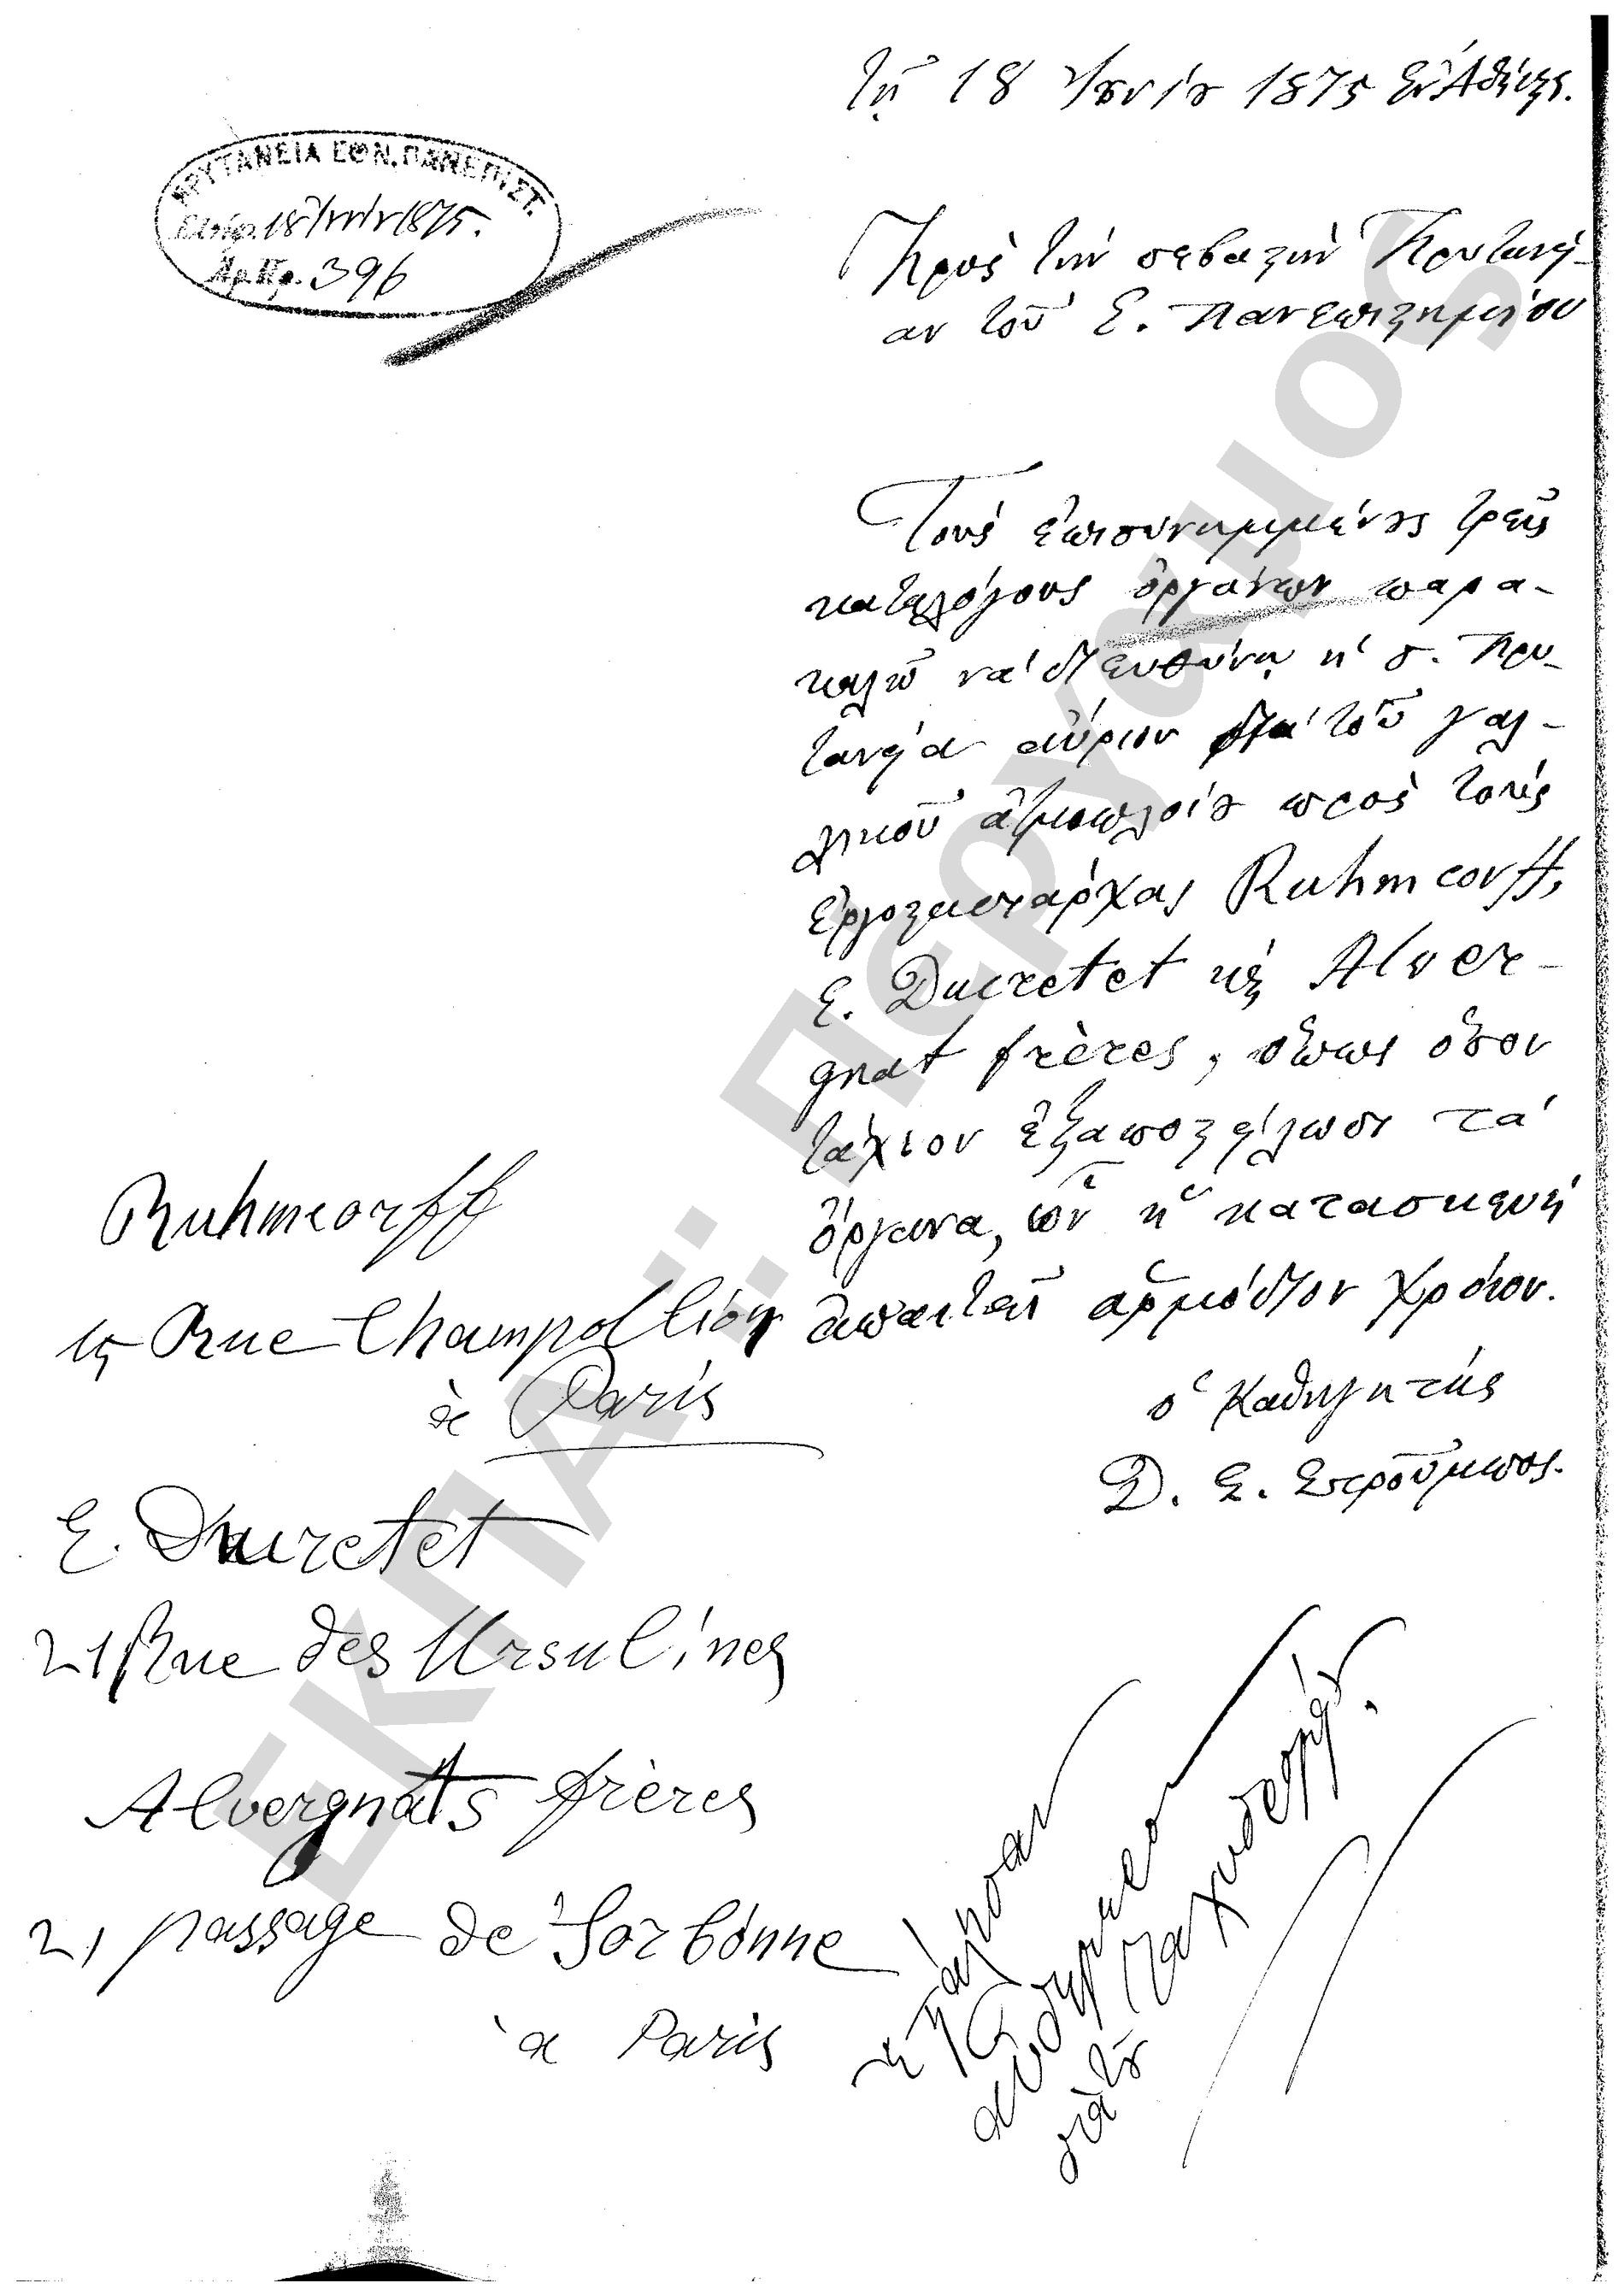 τῇ 18 Ἰουνίου 1875 ἐν Ἀθήναις.
ΠΡΥΤΑΝΕΙΑ ΕΘΝ. ΠΑΝΕΠΙΣΤ.
18 Ἰουνίου 1875.
Ἀρ. Πρ. 396
Πρὸς τὴν σεβαστὴν Πρυτανεί-
αν τοῦ Ἐ. Πανεπιστημείου
Τοὺς ἐπισυνημμένους τρεῖς
καταλόγους ὀργάνων παρα-
καλῶ νὰ διευθύνῃ ἡ σ. Πρυ-
τανεία αὔριον διὰ τοῦ γαλ-
λικοῦ ἀτμοπλοίου πρὸς τοὺς
ἐργοστασιάρχας Ruhmcorff,
E. Ducretet καὶ Alver-
gnat frères, ὅπως ὅσον
τάχιον ἐξαποστείλωσι τὰ
ὄργανα, ὧν ἡ κατασκευὴ
ἀπαιτεῖ ἁρμόδιον χρόνον.
ὁ Καθηγητὴς
Δ. Σ. Στροῦμπος.
Ruhmcorff
15 Rue Champollion
à Paris
E. Ducretet
21 Rue des Ursulines
Alvergnats frères
21 passage de Sorbonne
à Paris
αὐθημερὸν
διὰ τοῦ ταχυδρομείου.
ΕΚΠΑ:: Πέργαμος